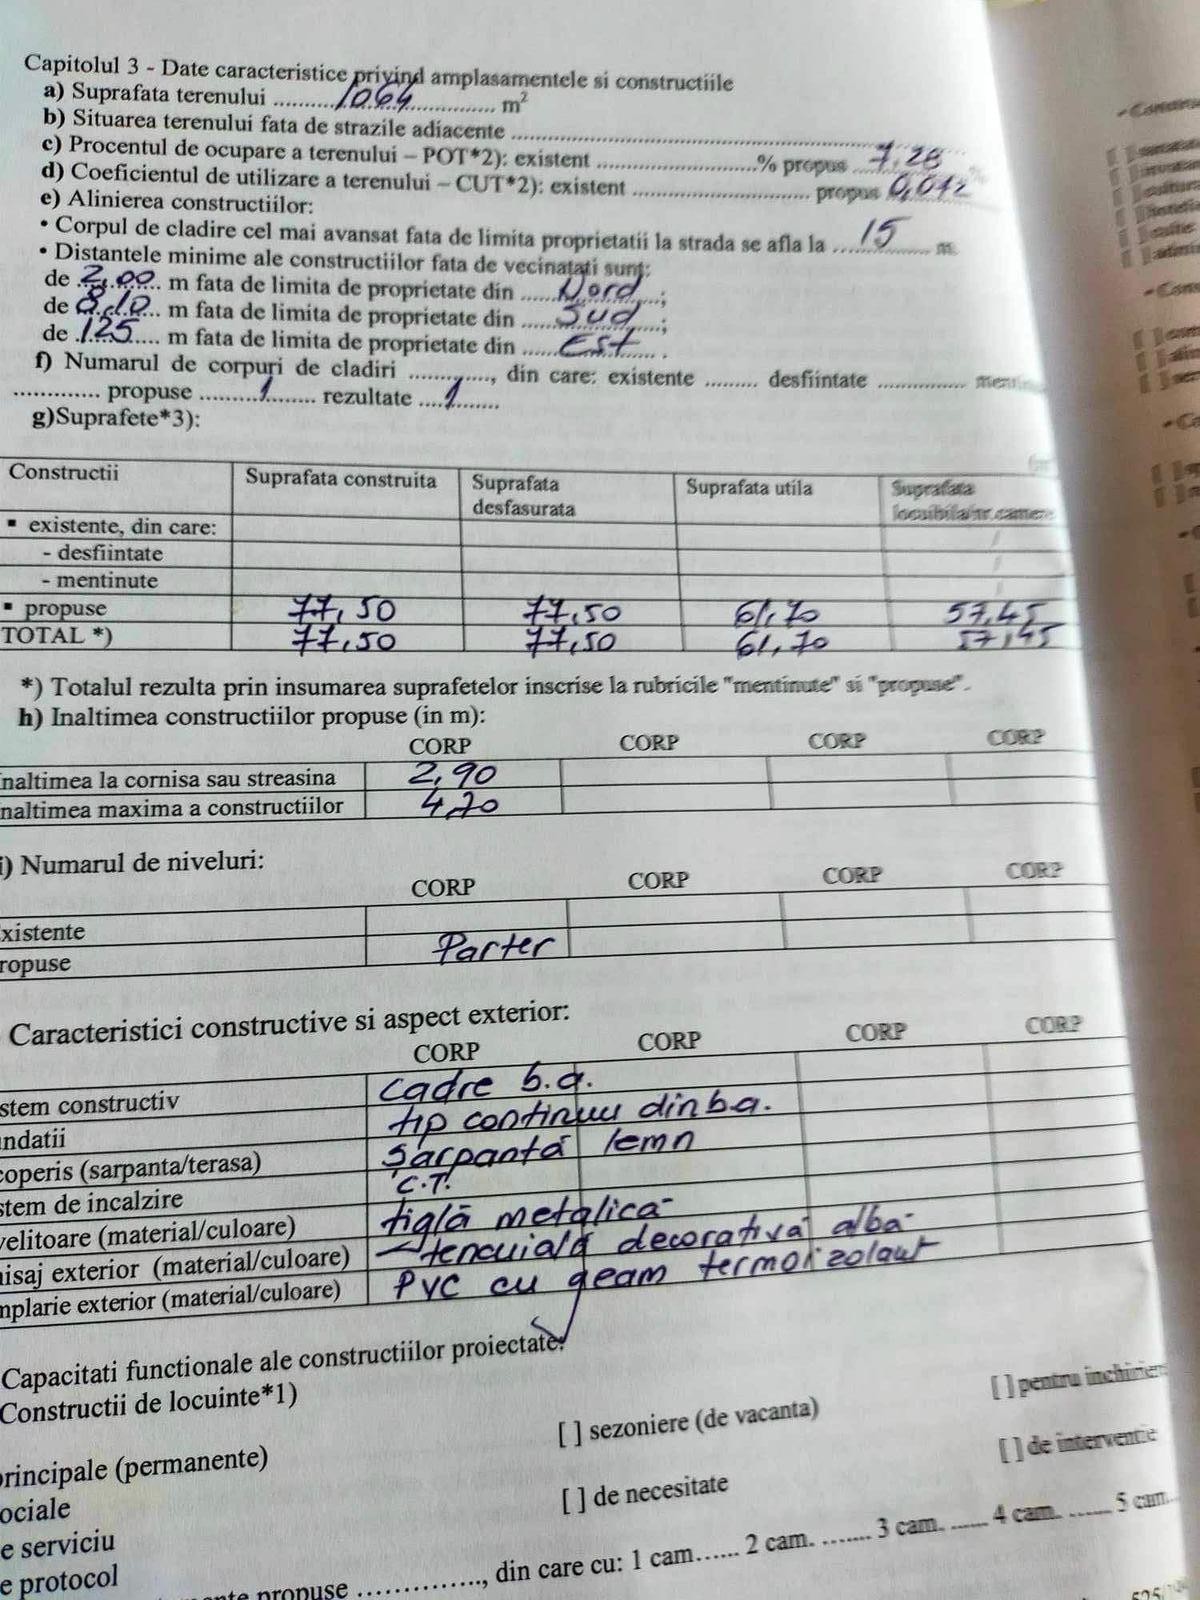 Capitolul 3 - Date caracteristice privind amplasamentele si constructiile
a) Suprafata terenului ..........1064............... m²
b) Situarea terenului fata de strazile adiacente ..........................
c) Procentul de ocupare a terenului – POT*2): existent ........................% propus 7,28 %
d) Coeficientul de utilizare a terenului – CUT*2): existent ........................... propus 0,072
e) Alinierea constructiilor:
• Corpul de cladire cel mai avansat fata de limita proprietatii la strada se afla la ......15...... m
• Distantele minime ale constructiilor fata de vecinatati sunt:
de 2,00 m fata de limita de proprietate din ......Nord......;
de 8,10 m fata de limita de proprietate din ......Sud......;
de 125 m fata de limita de proprietate din ......Est...... .
f) Numarul de corpuri de cladiri ............, din care: existente ......... desfiintate ...............
............. propuse .........1........ rezultate ....1.......
g)Suprafete*3):
Constructii Suprafata construita Suprafata desfasurata Suprafata utila Suprafata locuibila/nr.camere
▪ existente, din care:
- desfiintate
- mentinute
▪ propuse 77,50 77,50 61,70 57,45
TOTAL *) 77,50 77,50 61,70 57,45
*) Totalul rezulta prin insumarea suprafetelor inscrise la rubricile "mentinute" si "propuse".
h) Inaltimea constructiilor propuse (in m):
CORP CORP CORP CORP
naltimea la cornisa sau streasina 2,90
naltimea maxima a constructiilor 4,70
i) Numarul de niveluri:
CORP CORP CORP CORP
xistente
ropuse Parter
Caracteristici constructive si aspect exterior:
CORP CORP CORP CORP
stem constructiv cadre b.a.
ndatii tip continuu din b.a.
coperis (sarpanta/terasa) Șarpantă lemn
stem de incalzire C.T.
velitoare (material/culoare) țiglă metalică
nisaj exterior (material/culoare) tencuială decorativă albă
mplarie exterior (material/culoare) PVC cu geam termoizolant
Capacitati functionale ale constructiilor proiectate:
Constructii de locuinte*1)
principale (permanente) [ ] sezoniere (de vacanta) [ ] pentru inchirier
ociale [ ] de necesitate [ ] de interventie
e serviciu
e protocol
propuse .............., din care cu: 1 cam...... 2 cam. ....... 3 cam. ...... 4 cam. ...... 5 cam.